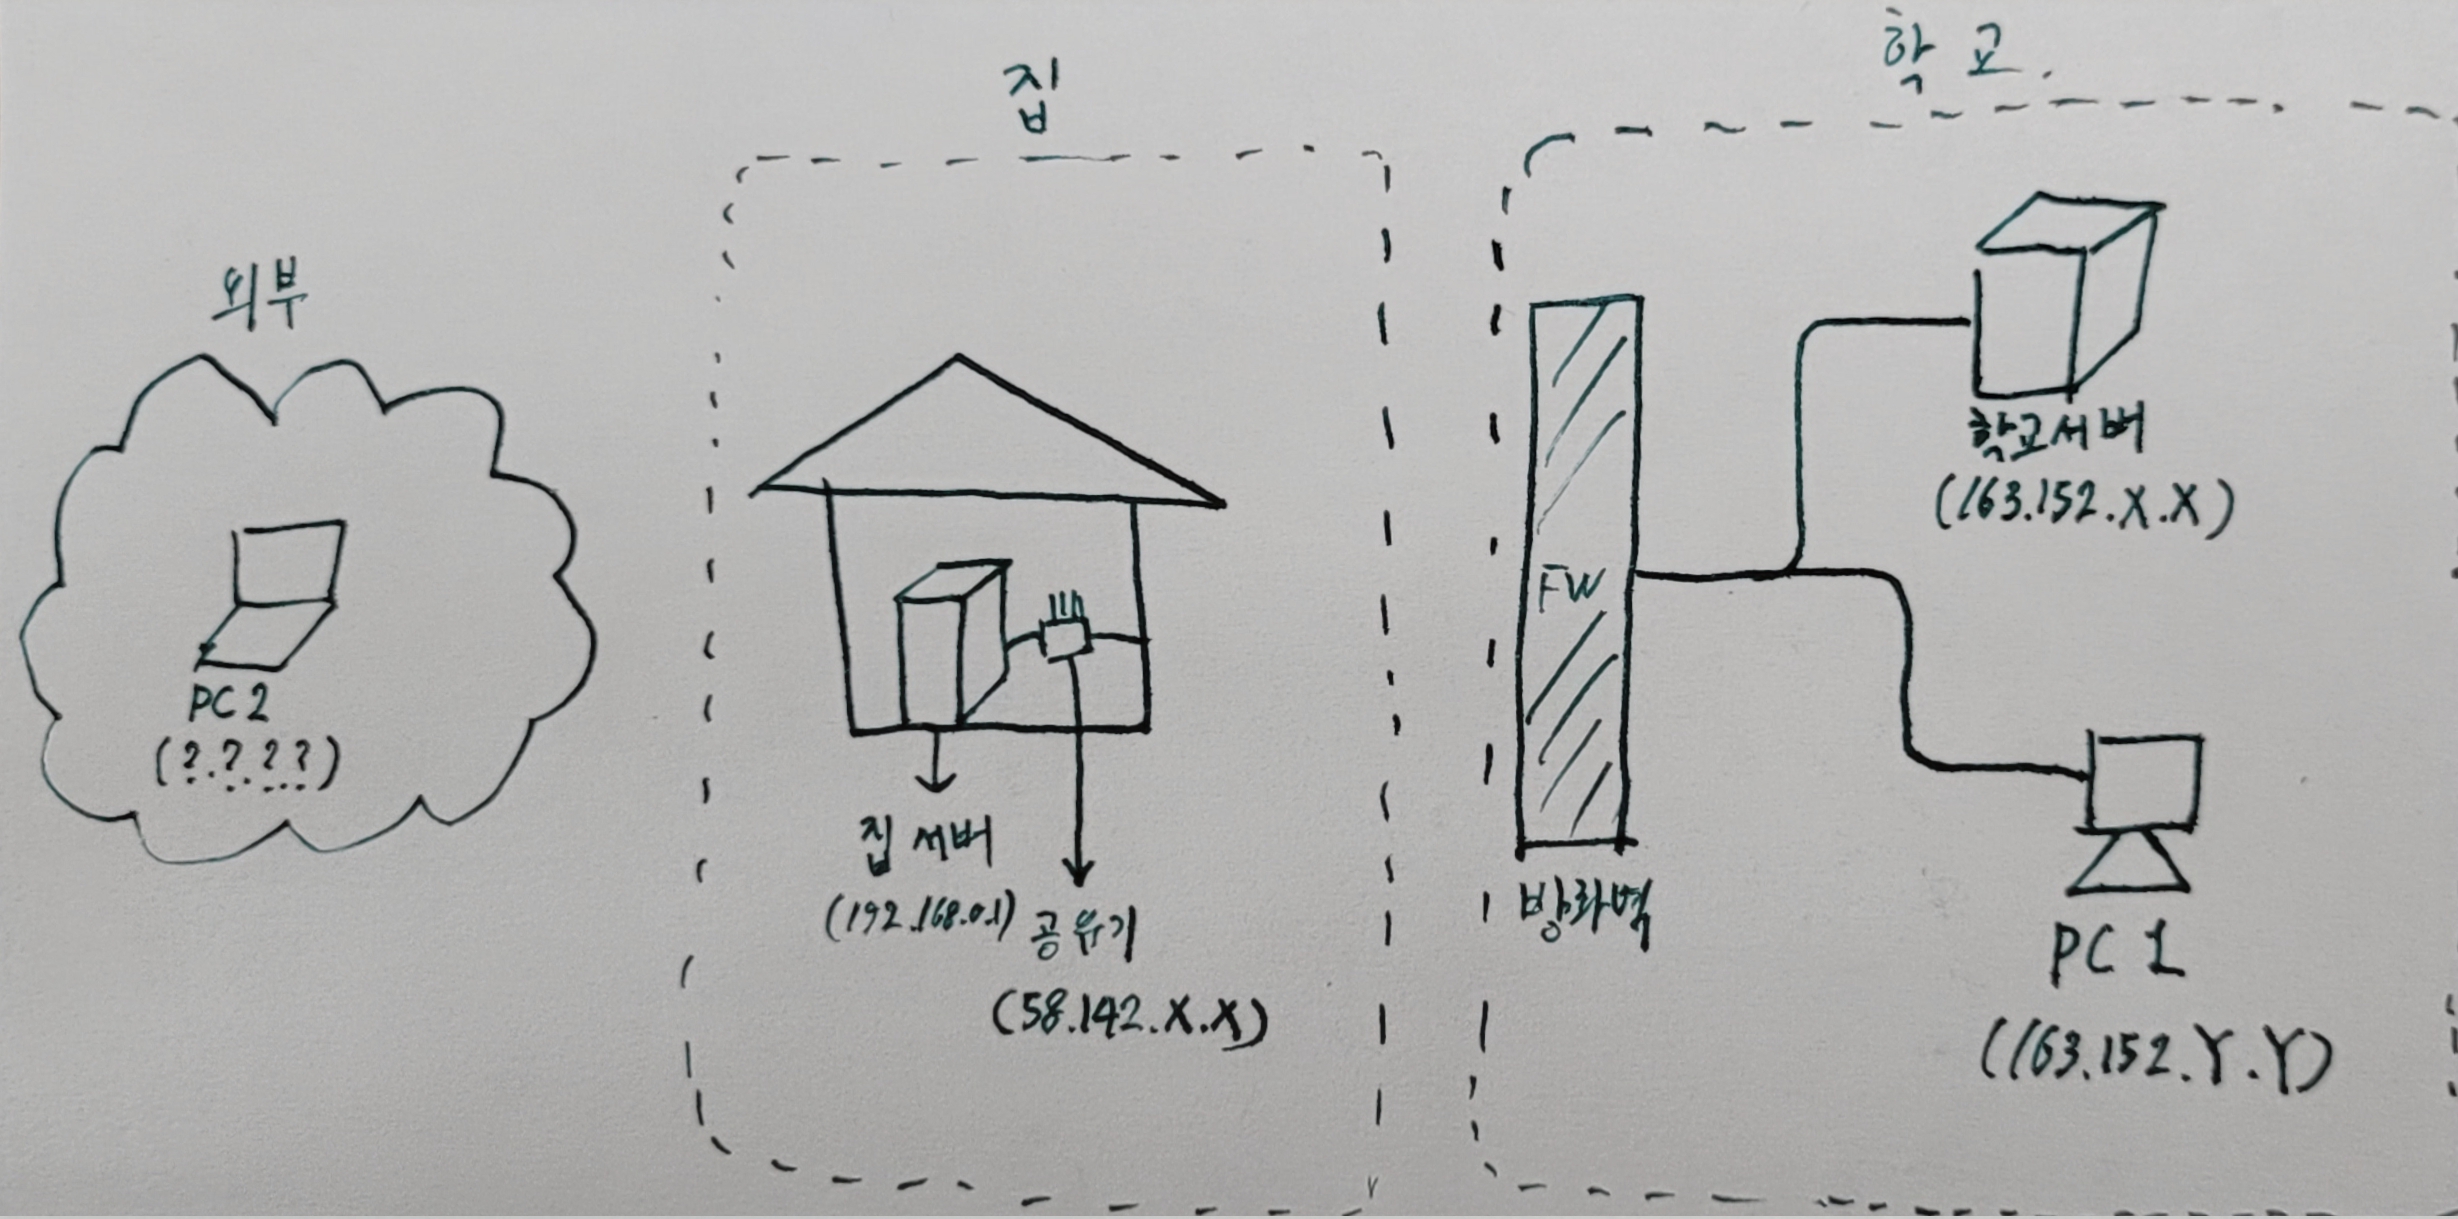 외부
PC2
(?.?.?.?)
집
집 서버
(192.168.0.1)
공유기
(58.142.X.X)
학교.
FW
방화벽
학교서버
(163.152.X.X)
PC 1
(163.152.Y.Y)